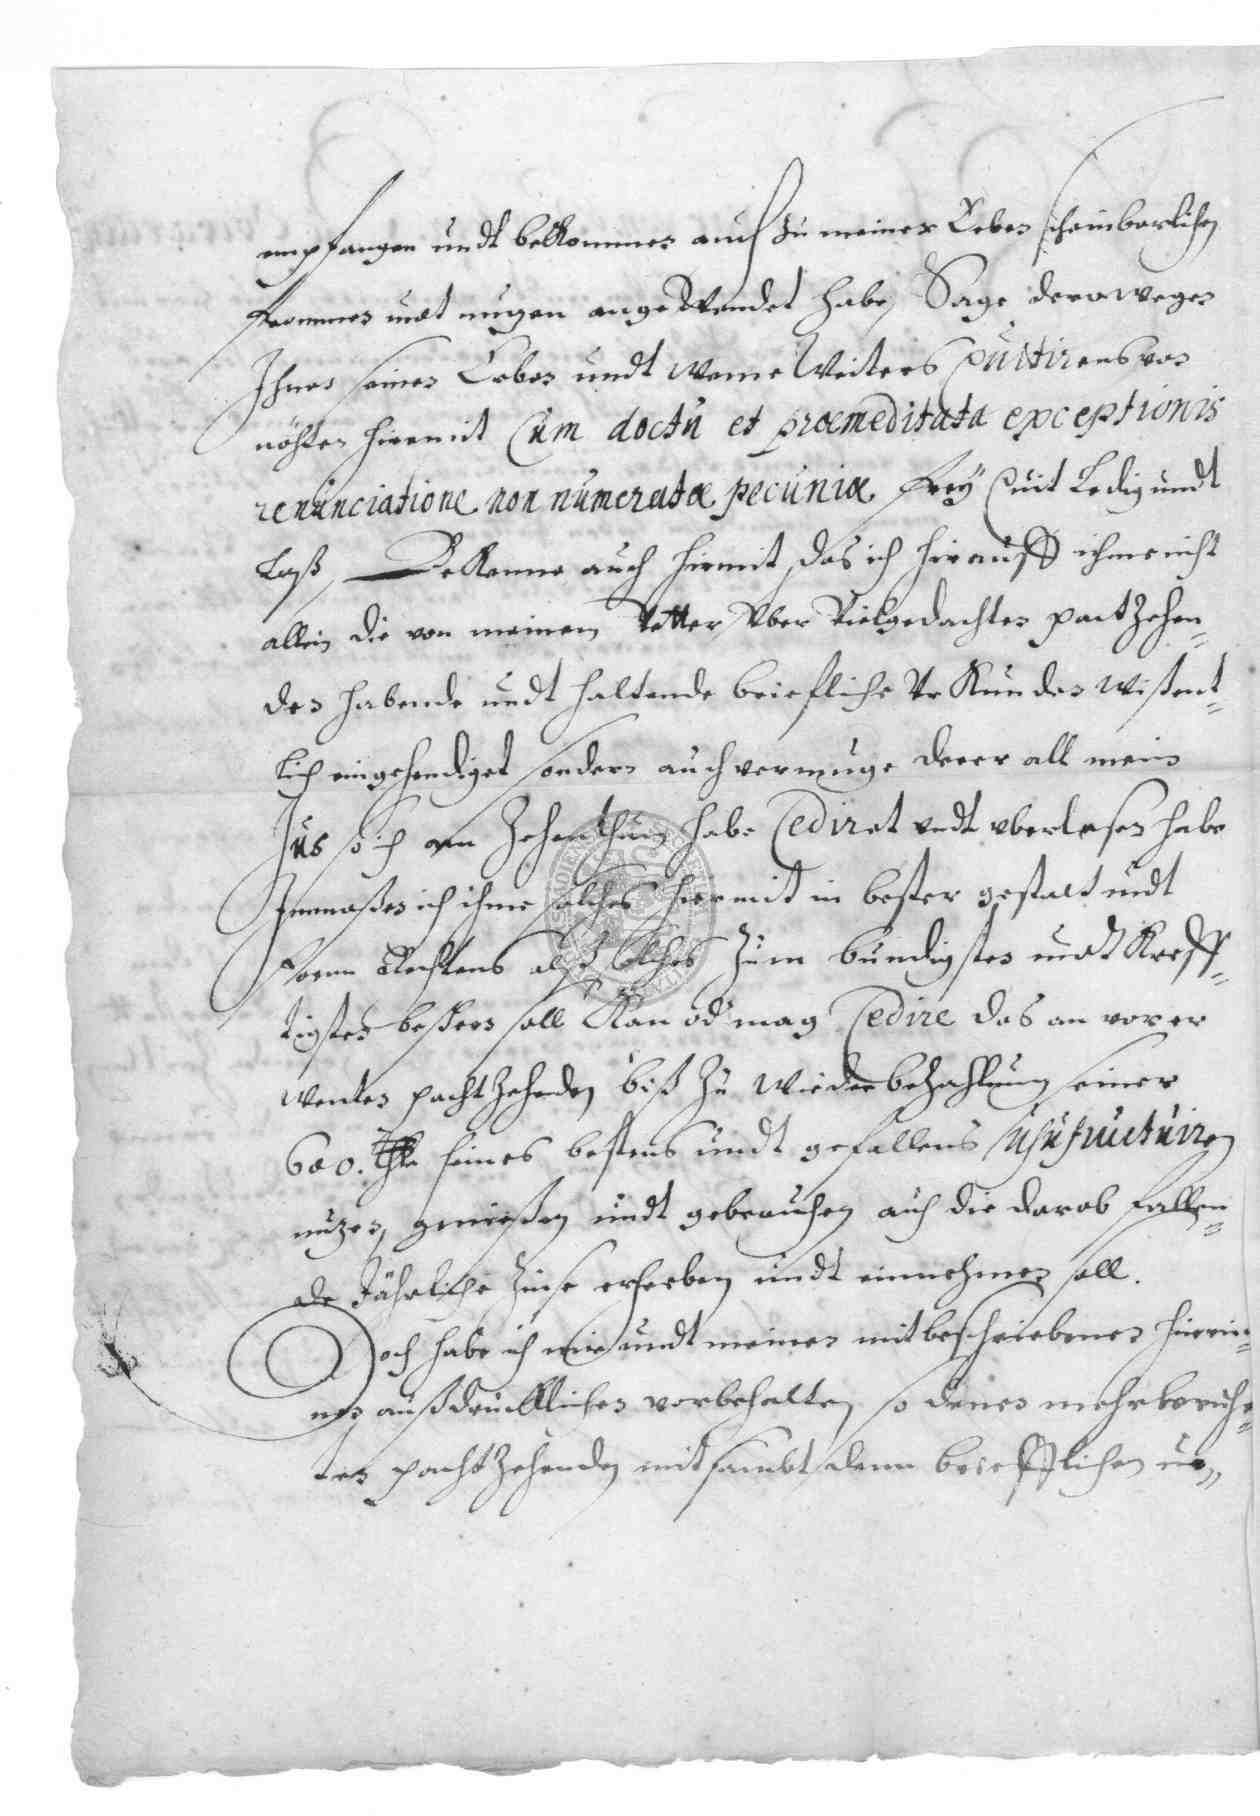 empfangen undt bekommen auch zu meinen Erben scheinbarlichen
frommen undt nuzen angewendet habe, Sage derowegen
Ihnen seinen Erben undt weme weiters quitirens von
nöhten hiermit Cum docta et praemeditata exceptionis
renunciatione non numeratae pecuniae frey quit Ledig undt
Loß, Bekenne auch hiermit, das ich hierauff ihme nicht
allein die von meinem Vetter uber vielgedachten pachtzehen=
den habende undt haltende briefliche Urkunden wißent=
lich eingehendiget sondern auch vermuge derer all mein
Jus so ich am Zehenthuen habe Cediret undt uberlasen habe
Inmaßen ich ihme solches hiermit in bester gestalt undt
form Rechtens als solches zum bundigsten undt kreff=
tigsten beschen soll kan od mag Cedire das an vor er
wenten pachtzehenden biß zu wiederbezahlung seiner
600. Thlr seines bestens undt gefallens usufructuiren
nuzen, genießen undt gebrauchen auch die darob fallen=
de Jährliche Zinse erheben undt einnehmen soll.
Doch habe ich mir undt meinen mitbeschriebenen hierin=
nen außdrucklichen vorbehalten, so denen mehrberuhr=
ten pachtzehenden mitsambt denen brieflichen ur=